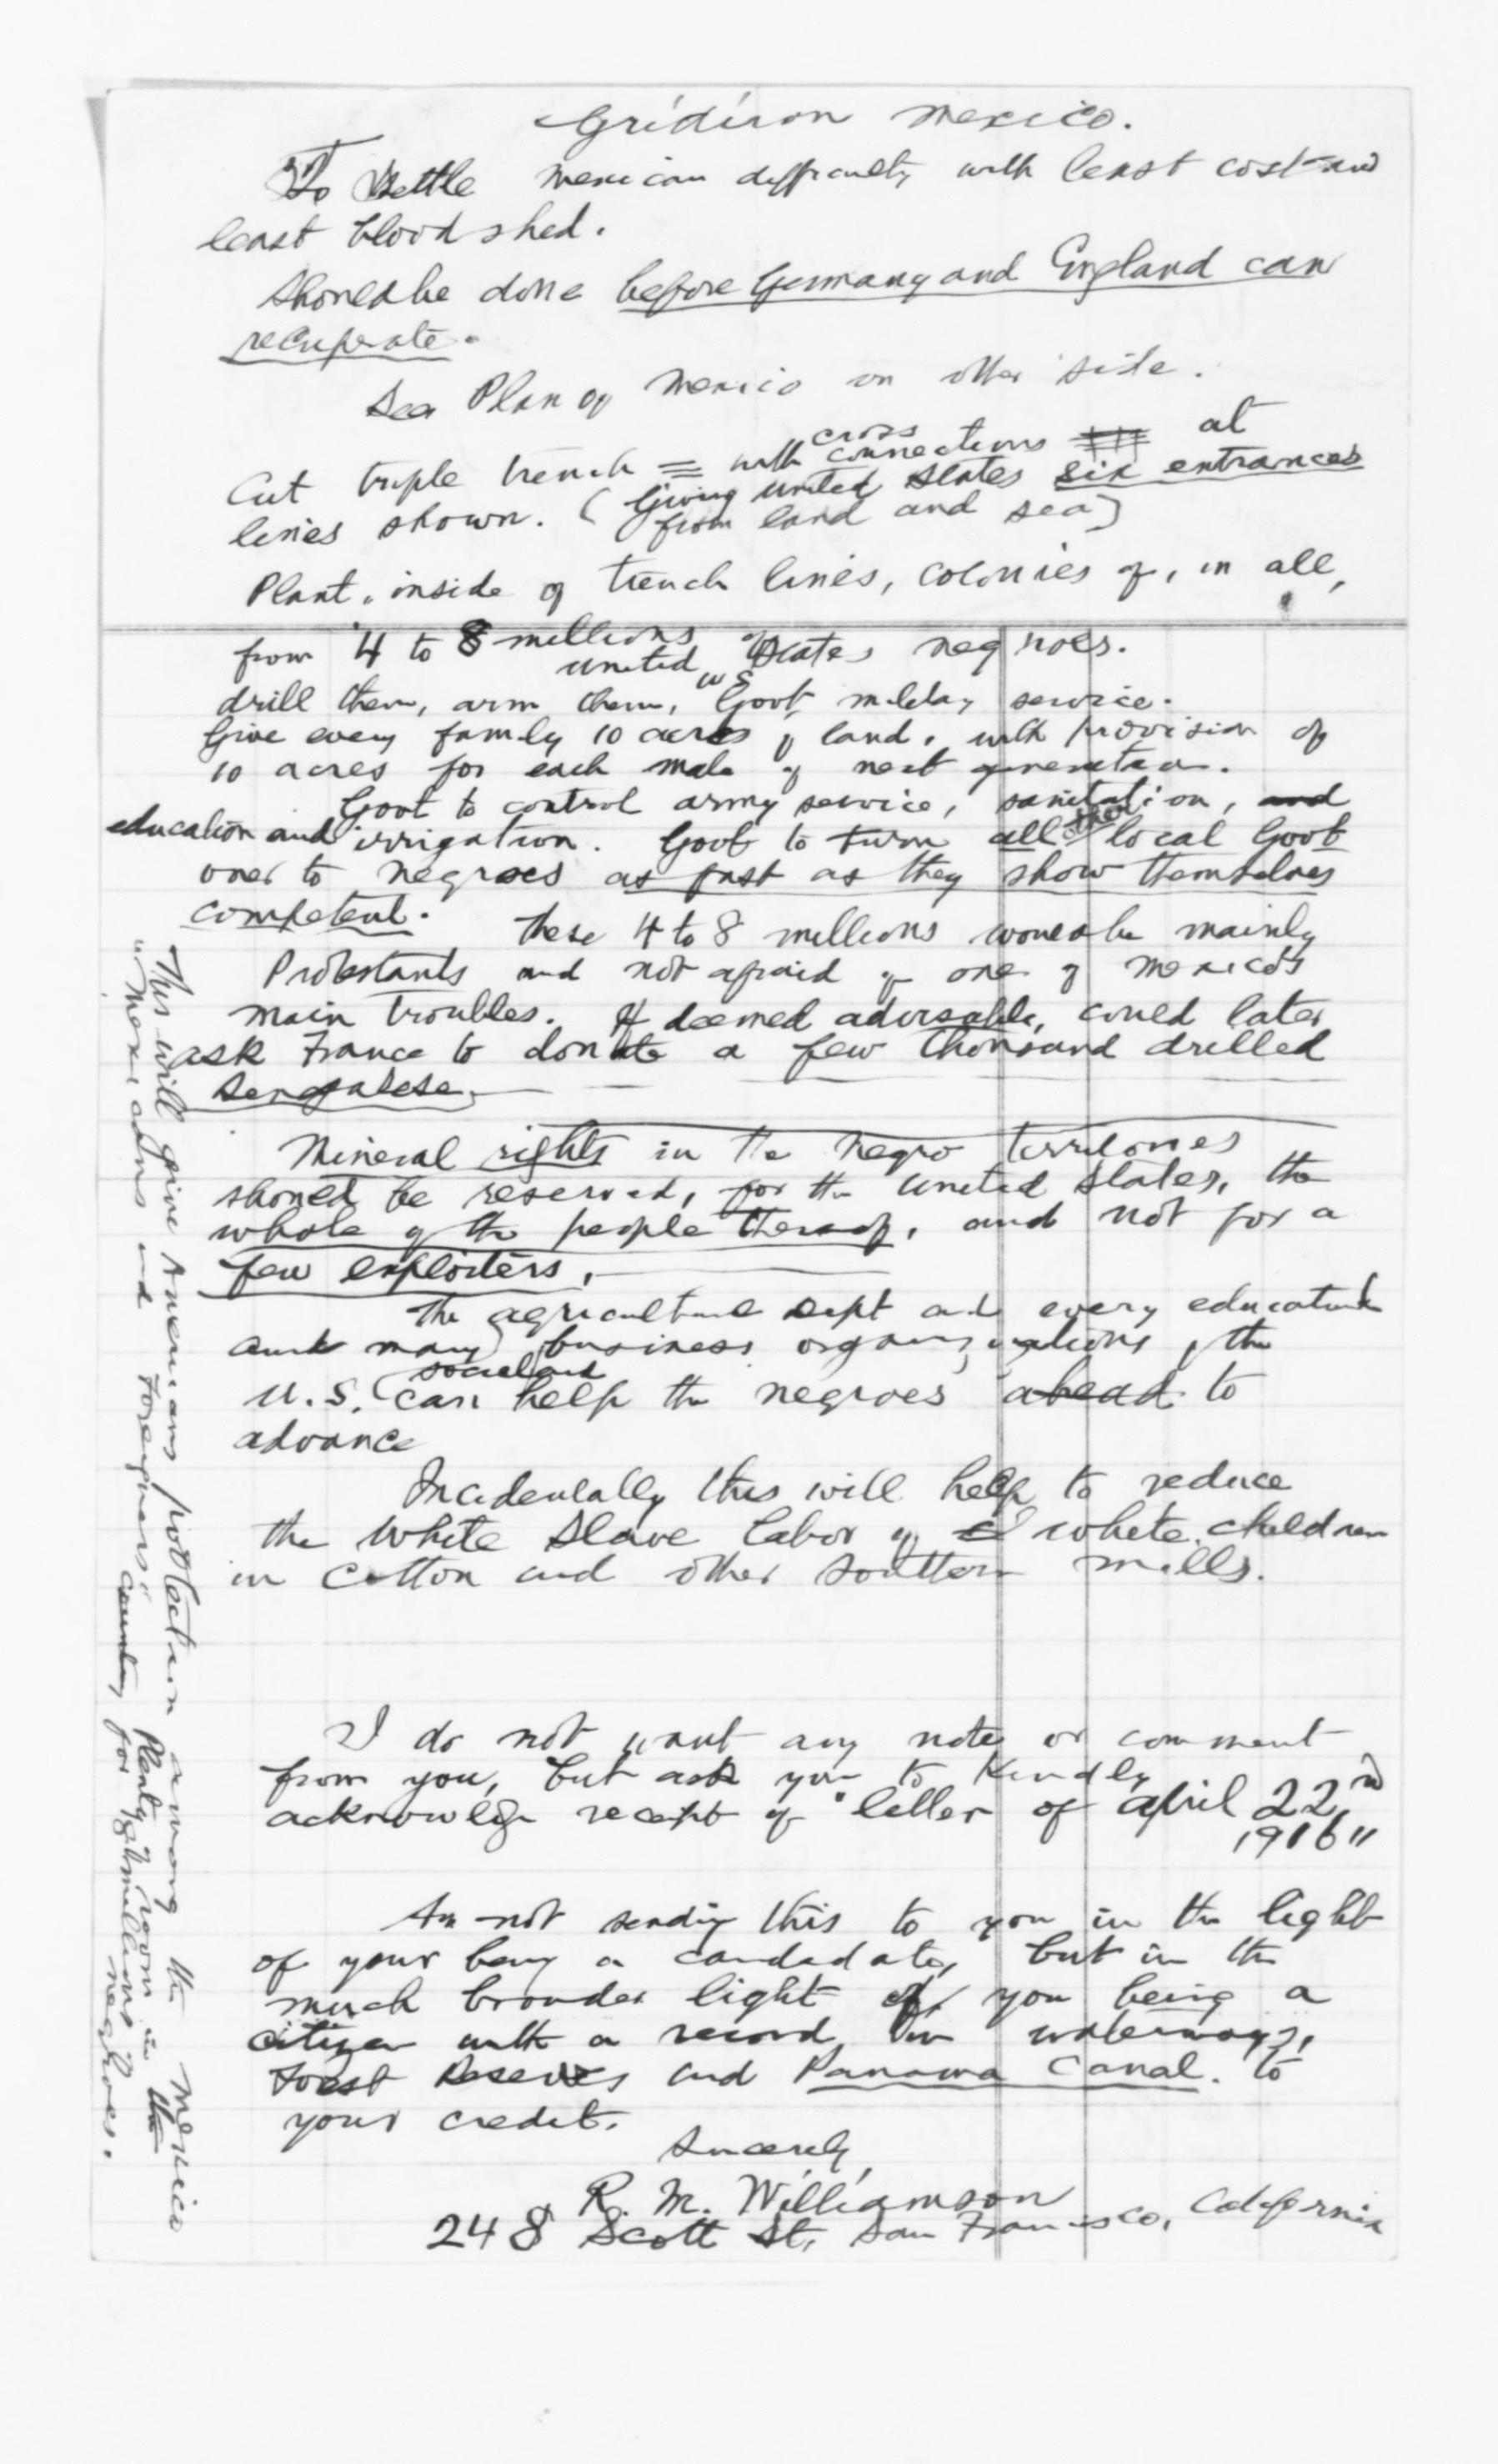 Gridiron Mexico.
To Settle Mexican difficulty with least cost and
least bloodshed.
Should be done before Germany and England can
recuperate.
See Plan of Mexico on other side.
Cut triple trench = with cross connections at
lines shown. (Giving United States six entrances
from land and sea)
Plant, inside of trench lines, colonies of, in all,
from 4 to 8 millions of United States negroes.
drill them, arm them, U S Govt military service.
Give every family 10 acres of land, with provision of
10 acres for each male of next generation.
Govt to control army service, sanitation, and
education and irrigation. Govt to turn all other local Govt
over to negroes as fast as they show themselves
competent. These 4 to 8 millions would be mainly
Protestants and not afraid of one of Mexico's
main troubles. If deemed advisable, could later
ask France to donate a few thousand drilled
Sengalese.
Mineral rights in the negro territories
should be reserved, for the United States, the
whole of the people thereof, and not for a
few exploiters.
The agricultural Dept and every educational
and many business organizations, the
U.S. social and can help the negroes ahead to
advance
Incidentally this will help to reduce
the White Slave Labor of white children
in Cotton and other Southern mills.
I do not want any note or comment
from you, but ask you to kindly
acknowledge receipt of "letter of April 22nd
1916"
Am not sending this to you in the light
of your being a candidate, but in the
much broader light of you being a
citizen with a record in waterways,
Forest Reserves and Panama Canal. to
your credit.
Sincerely
R. M. Williamson
248 Scott St, San Francisco, California
This will give Americans protection among the Mexico
"Mexicans and Foreigners" Plenty of room in the
country for 8 millions negroes.